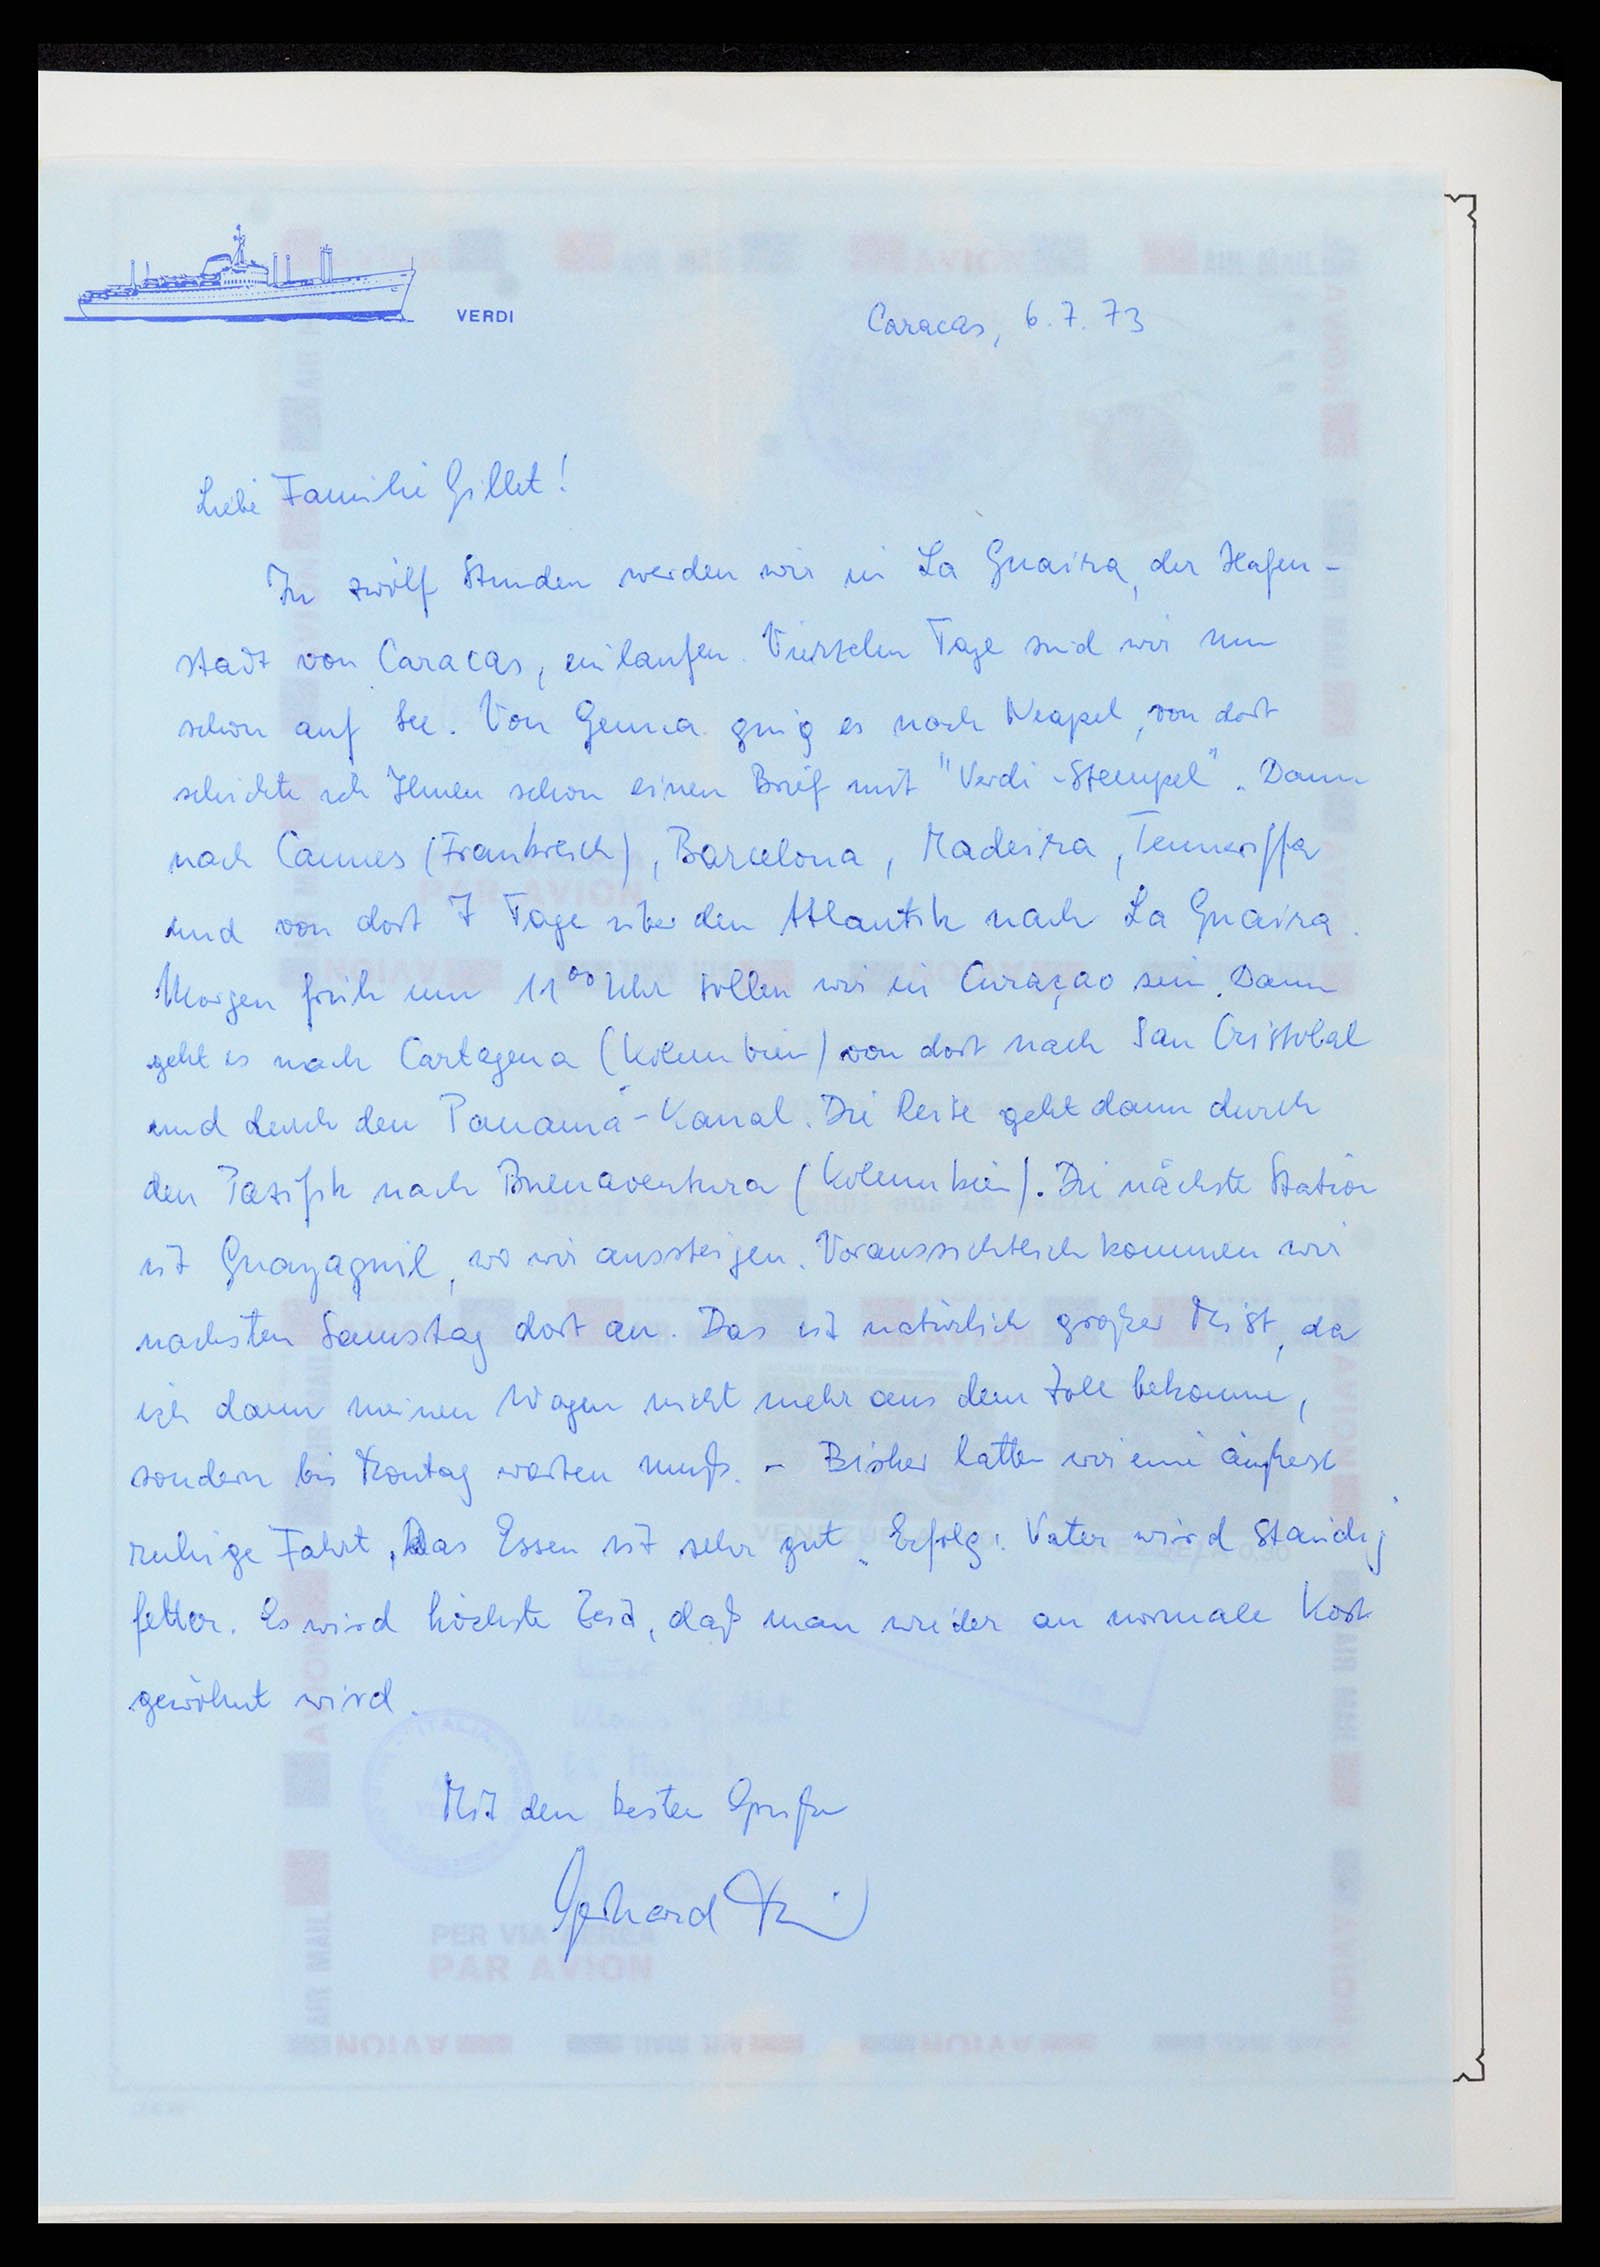 VERDI
Caracas, 6.7.73
Liebe Familie Gillet!
In zwölf Stunden werden wir in La Guaira, der Hafen-
stadt von Caracas, einlaufen. Vierzehn Tage sind wir nun
schon auf See. Von Genua ging es nach Neapel, von dort
schickte ich Ihnen schon einen Brief mit "Verdi-Stempel". Dann
nach Cannes (Frankreich), Barcelona, Madeira, Tenneriffa
und von dort 7 Tage über den Atlantik nach La Guaira.
Morgen früh um 11⁰⁰ Uhr sollen wir in Curaçao sein. Dann
geht es nach Cartagena (Kolumbien) von dort nach San Cristobal
und durch den Panama-Kanal. Die Reise geht dann durch
den Pazifik nach Buenaventura (Kolumbien). Die nächste Station
ist Guayaquil, wo wir aussteigen. Voraussichtlich kommen wir
nächsten Samstag dort an. Das ist natürlich großer Mist, da
ich dann meinen Wagen nicht mehr aus dem Zoll bekomme,
sondern bis Montag warten muß. - Bisher hatten wir eine äußerst
ruhige Fahrt, Das Essen ist sehr gut. Erfolg: Vater wird ständig
fetter. Es wird höchste Zeit, daß man wieder an normale Kost
gewöhnt wird.
Mit den besten Grüßen
Gerhard
PAR AVION
PER VIA AEREA
PAR AVION
AIR MAIL